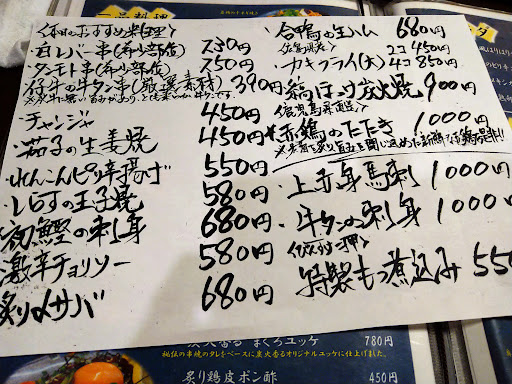 一品料理
〈本日のおすすめ料理〉
・白レバー串(希少部位) 230円
・タンモト串(希少部位) 250円
・仔牛の牛タン串(厳選素材) 390円
・チャンジャ 450円
・茄子の生姜焼 450円
・れんこんピリ辛揚げ 550円
・しらすの玉子焼 580円
・初鰹の刺身 680円
・激辛チョリソー 580円
・炙り〆サバ 680円
・合鴨の生ハム 680円
〈広島県産〉 2コ 450円
・カキフライ(大) 4コ 850円
・鶏はつ炭火焼 900円
〈鹿児島県直送〉
*赤鶏のたたき 1000円
・上赤身馬刺 1000円
・牛タンの刺身 1000円
特製もつ煮込み 550
炭火香る まぐろユッケ 780円
秘伝の串焼のタレをベースに炭火香るオリジナルユッケに仕上げました。
炙り鶏皮ポン酢 450円